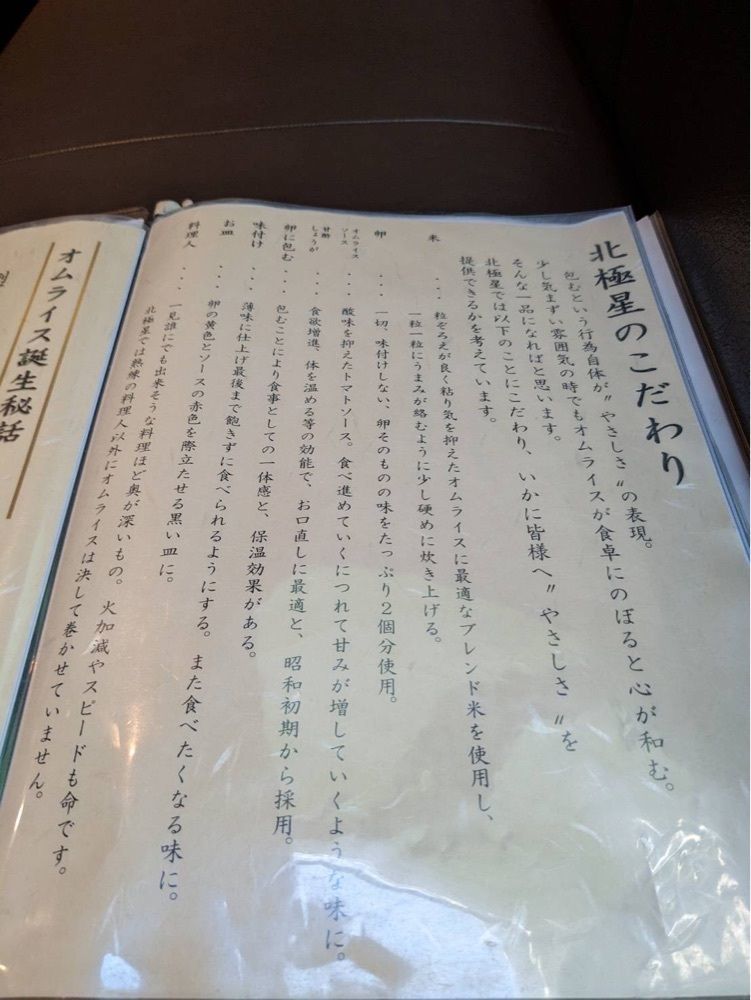 北極星のこだわり
包むという行為自体が〝やさしさ〟の表現。
少し気まずい雰囲気の時でもオムライスが食卓にのぼると心が和む。
そんな一品になればと思います。
北極星では以下のことにこだわり、いかに皆様へ〝やさしさ〟を
提供できるかを考えています。
米 ・・・ 粒ぞろえが良く粘り気を抑えたオムライスに最適なブレンド米を使用し、
一粒一粒にうまみが絡むように少し硬めに炊き上げる。
卵 ・・・ 一切、味付けしない、卵そのものの味をたっぷり2個分使用。
オムライス
ソース ・・・ 酸味を抑えたトマトソース。食べ進めていくにつれて甘みが増していくような味に。
甘酢
しょうが ・・・ 食欲増進、体を温める等の効能で、お口直しに最適と、昭和初期から採用。
卵に包む ・・・ 包むことにより食事としての一体感と、保温効果がある。
味付け ・・・ 薄味に仕上げ最後まで飽きずに食べられるようにする。また食べたくなる味に。
お皿 ・・・ 卵の黄色とソースの赤色を際立たせる黒い皿に。
料理人 ・・・ 一見誰にでも出来そうな料理ほど奥が深いもの。火加減やスピードも命です。
北極星では熟練の料理人以外にオムライスは決して巻かせていません。
オムライス誕生秘話